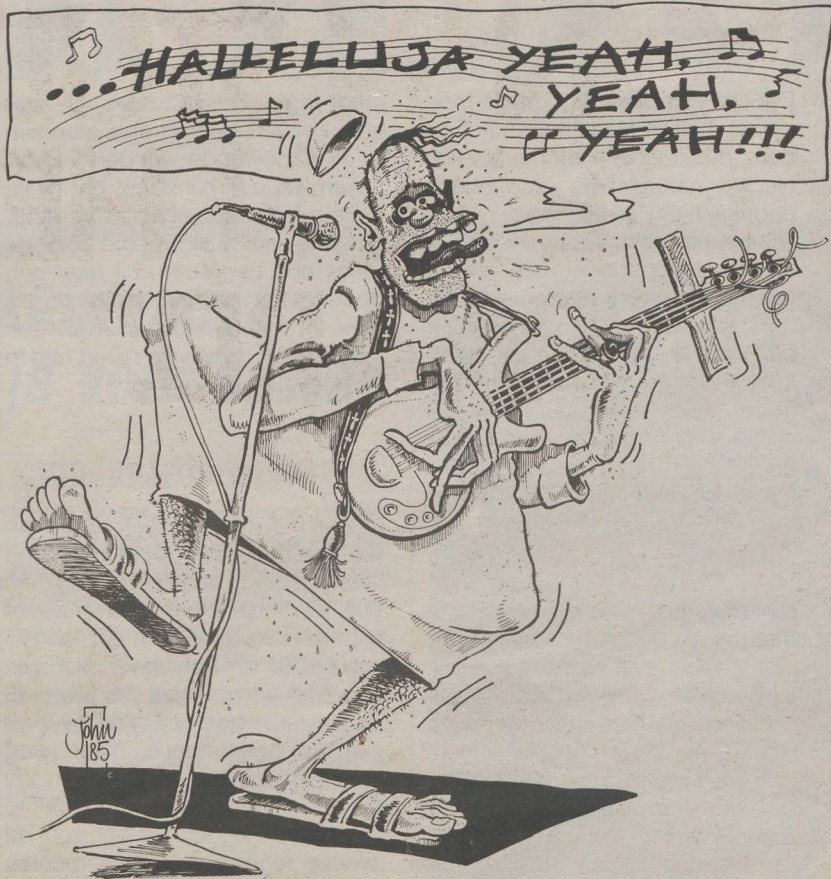 ...HALLELUJA YEAH,
YEAH,
YEAH!!!
John
85